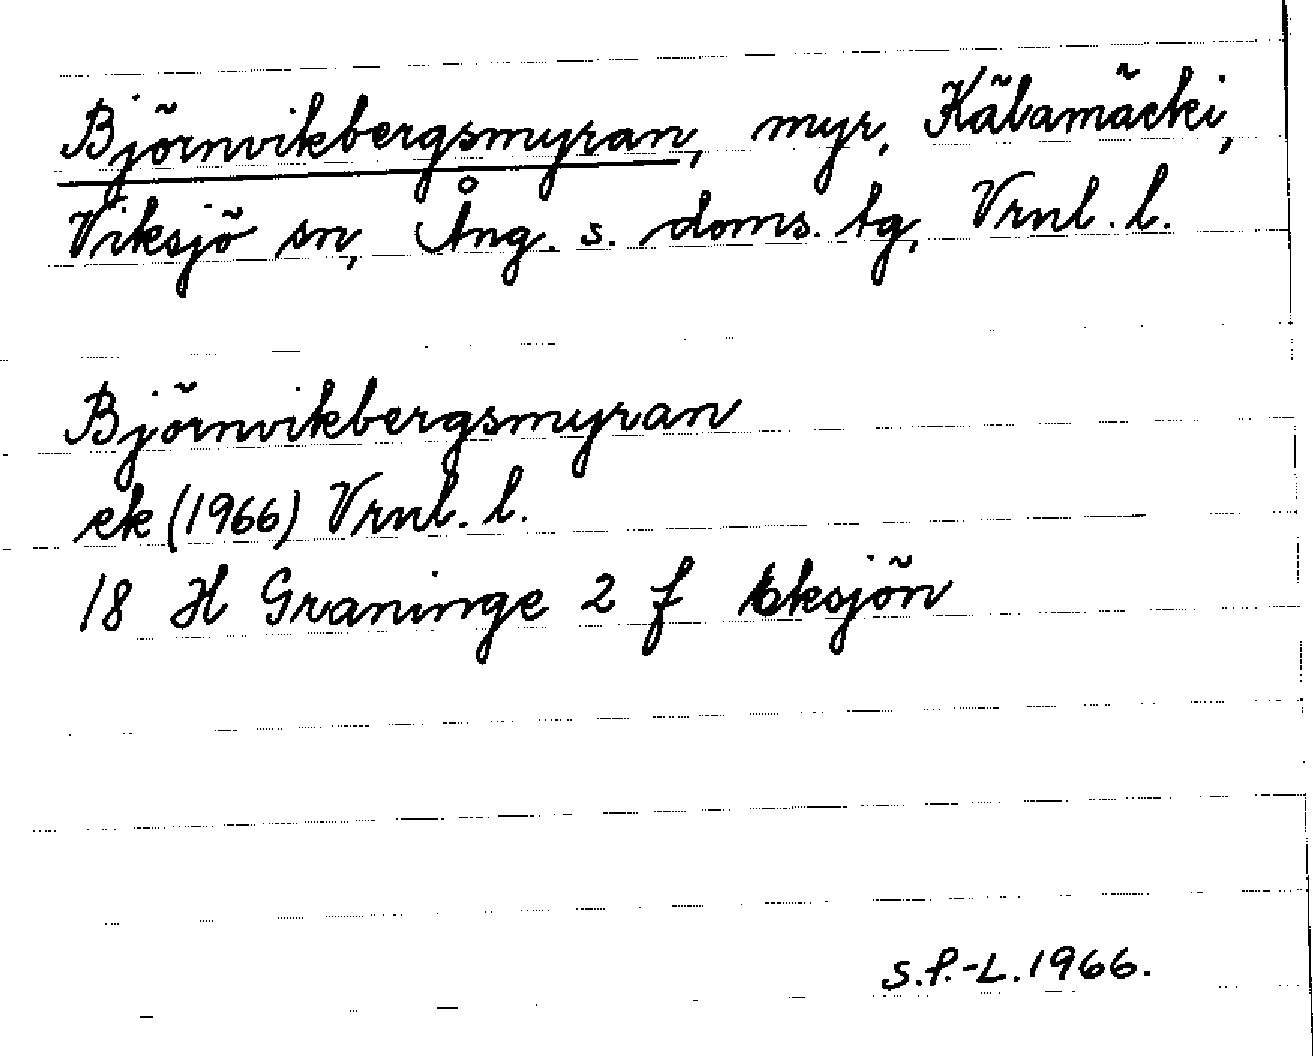 Björnvikbergsmyran, myr, Käbamäcki,
Viksjö sn, Ång. s. doms. tg, Vrnl. l.
Björnvikbergsmyran
ek (1966) Vrnl. l.
18 H Graninge 2 f Eksjön
S.P.-L. 1966.